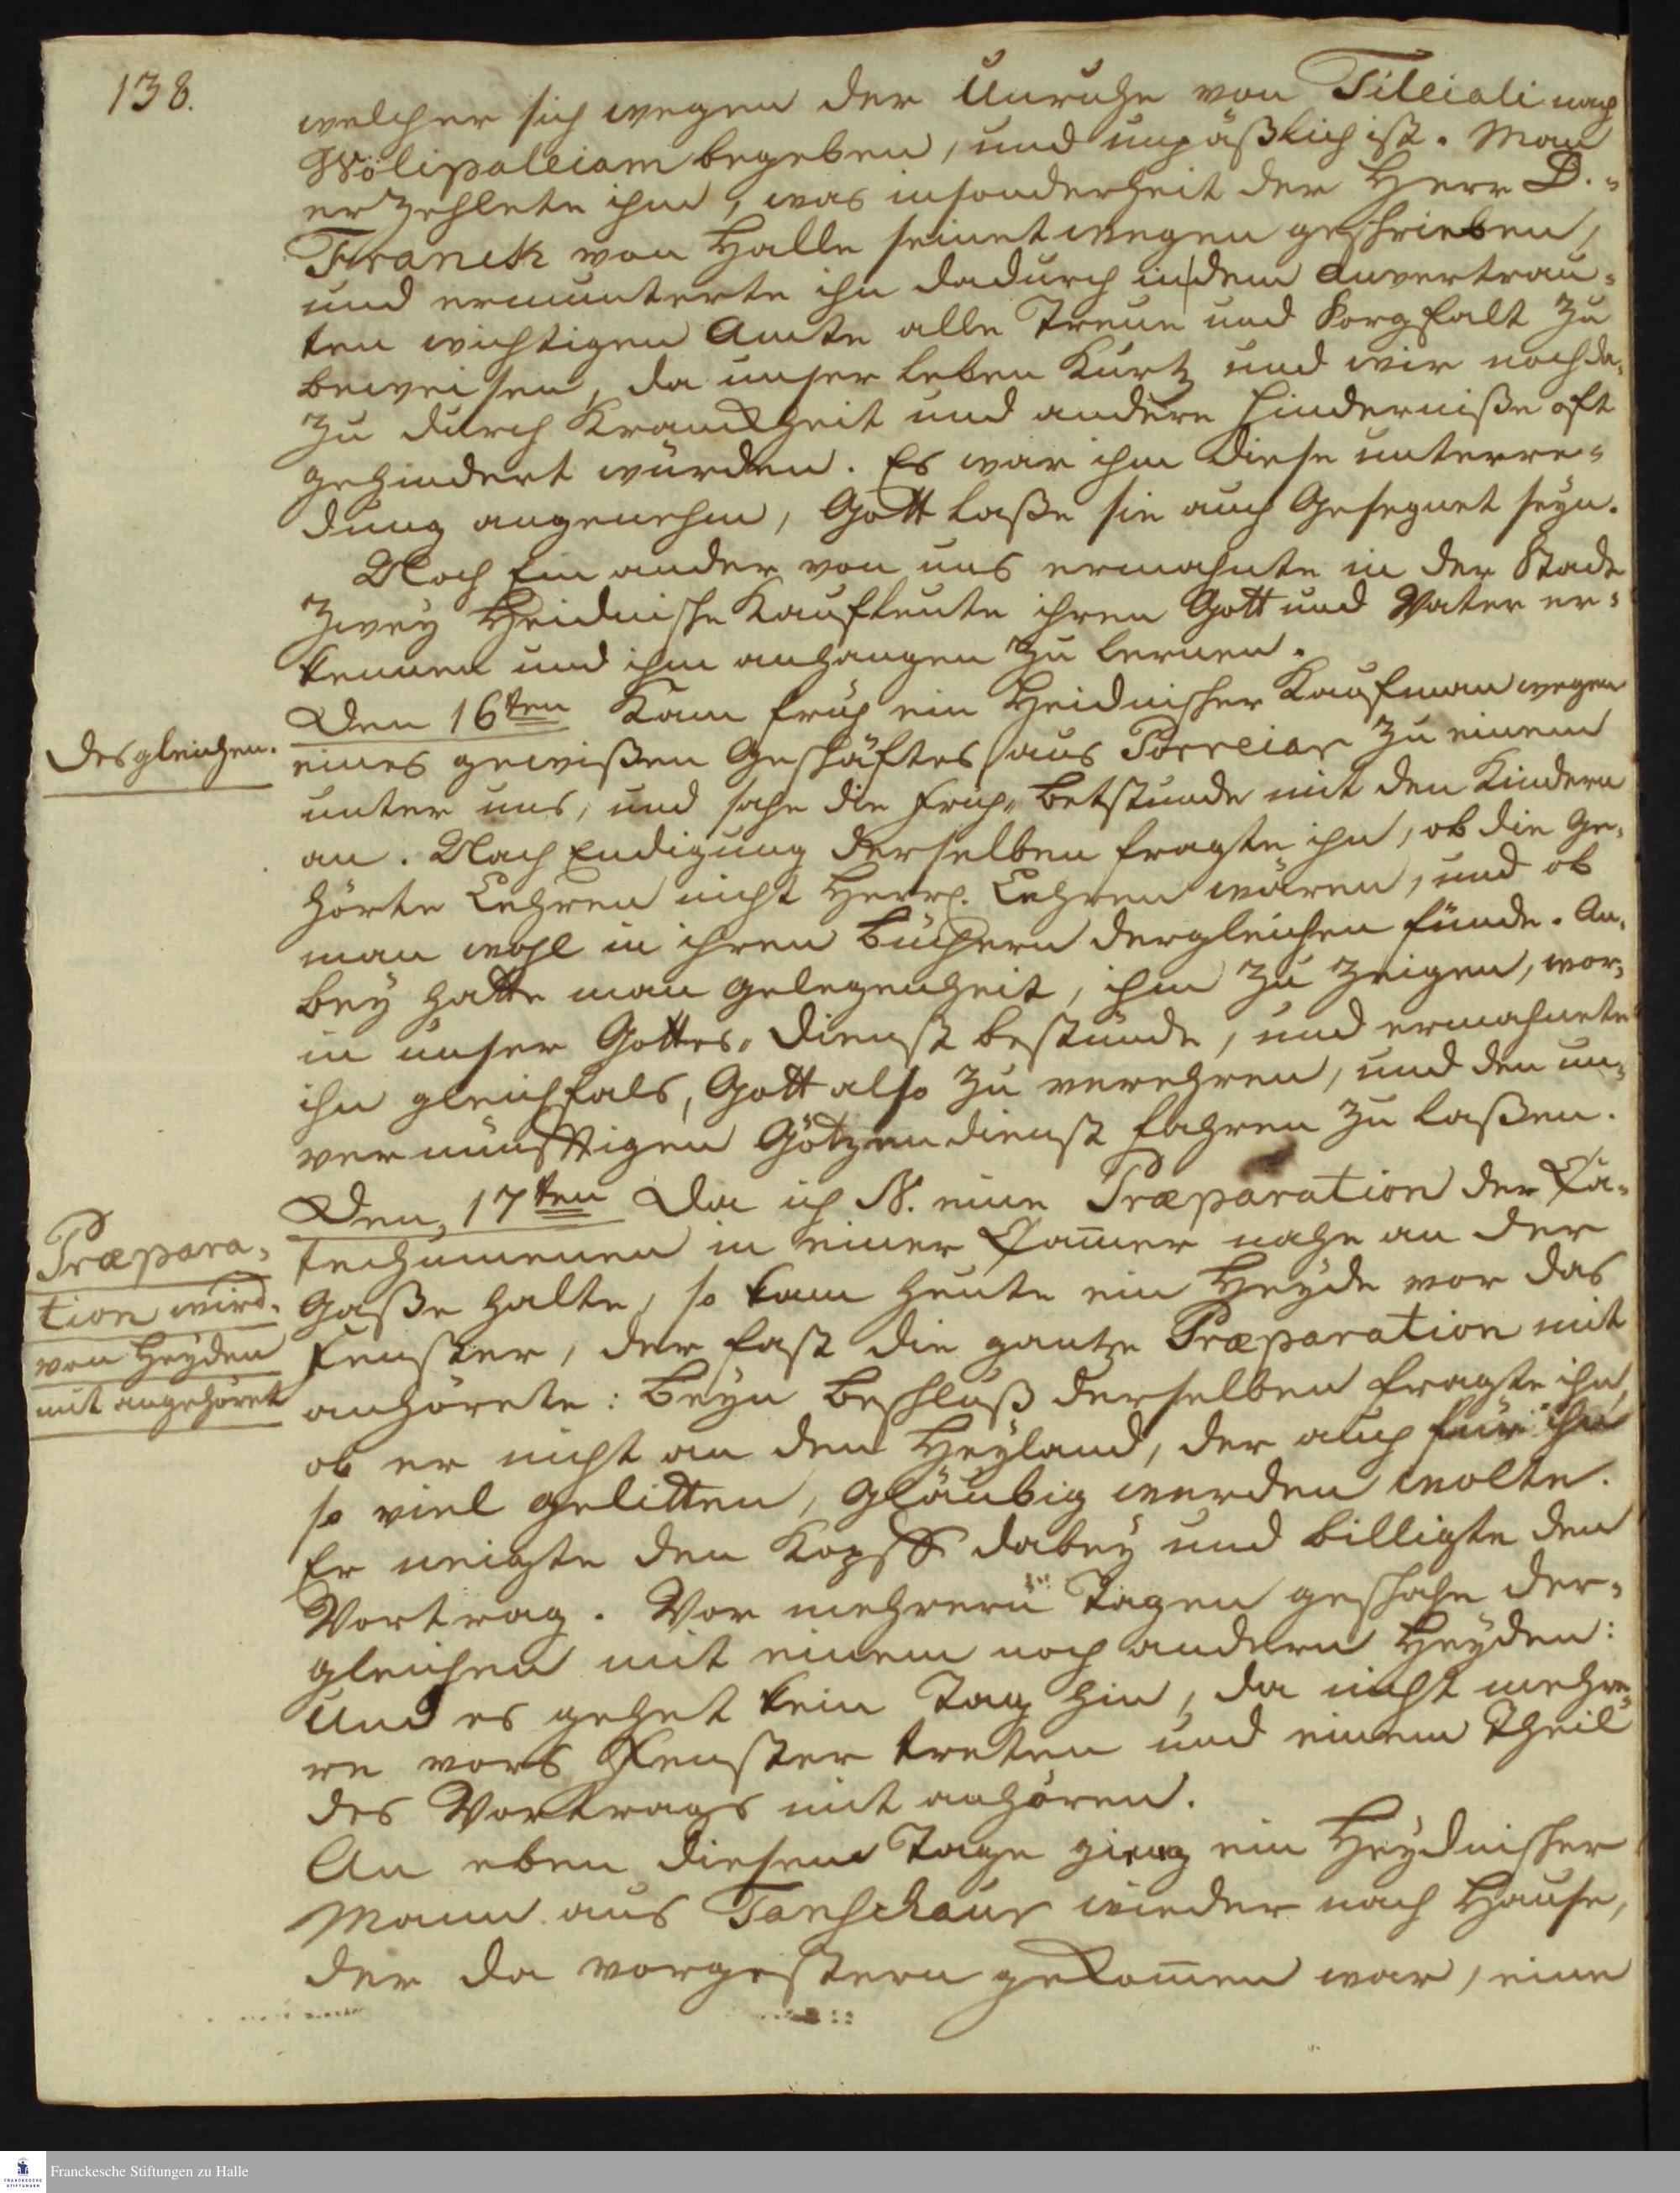 138.
welcher sich wegen der Unruhe von Tilleiali nach
Wölipalleiam begeben, und unpäßlich ist. Man
erzehlete ihm, was insonderheit der Herr D.
Franck von Halle seinetwegen geschrieben,
und ermunterte ihn dadurch in dem anvertrau-
ten wichtigen Amte alle Treue und Sorgfalt zu
beweisen, da unser Leben kurtz und wir noch da-
zu durch Kranckheit und andere Hinderniße oft
gehindert würden. Es war ihm diese unterre-
dung angenehm, Gott laße sie auch gesegnet seyn.
Noch ein ander von uns ermahnte in der Stadt
zwey Heidnische Kaufleute ihren Gott und Vater er-
kennen und ihm anhangen zu lernen.
Desgleichen.
Den 16ten Kam früh ein Heidnischer Kaufman wegen
eines gewißen Geschäftes aus Porreiar zu einem
unter uns, und sahe die Früh-betstunde mit den Kindern
an. Nach Endigung derselben fragte ihn, ob die ge-
hörte Lehren nicht herrl. Lehren wären, und ob
man wohl in ihren Büchern dergleichen fünde. An-
bey hatte man gelegenheit, ihm zu zeigen, wor-
in unser Gottes-dienst bestünde, und ermahnete
ihn gleichfals, Gott also zu verehren, und den un-
vernünfftigen Götzendienst fahren zu laßen.
Præpara-
tion wird
von Heyden
mit angehöret
Den 17ten Da ich N. eine Præparation der Ca-
techumenen in einer Camer nahe an der
Gaße halte, so kam heute ein Heyde vor das
Fenster, der fast die gantze Præparation mit
anhörete: Beym Beschluß derselben fragte ihn,
ob er nicht an den Heyland, der auch für ihn
so viel gelitten, gläubig werden wolte.
Er neigte den Kopff dabey und billigte den
Vortrag. Vor mehrern Tagen geschahe der-
gleichen mit einem noch andern Heyden:
Und es gehet kein Tag hin, da nicht mehre-
re vors Fenster treten und einen Theil
des Vortrags mit anhören.
An eben diesem Tage gieng ein Heydnischer
Mann aus Tanschaur wieder nach Hause,
der da vorgestern gekomen war, eine
Franckesche Stiftungen zu Halle